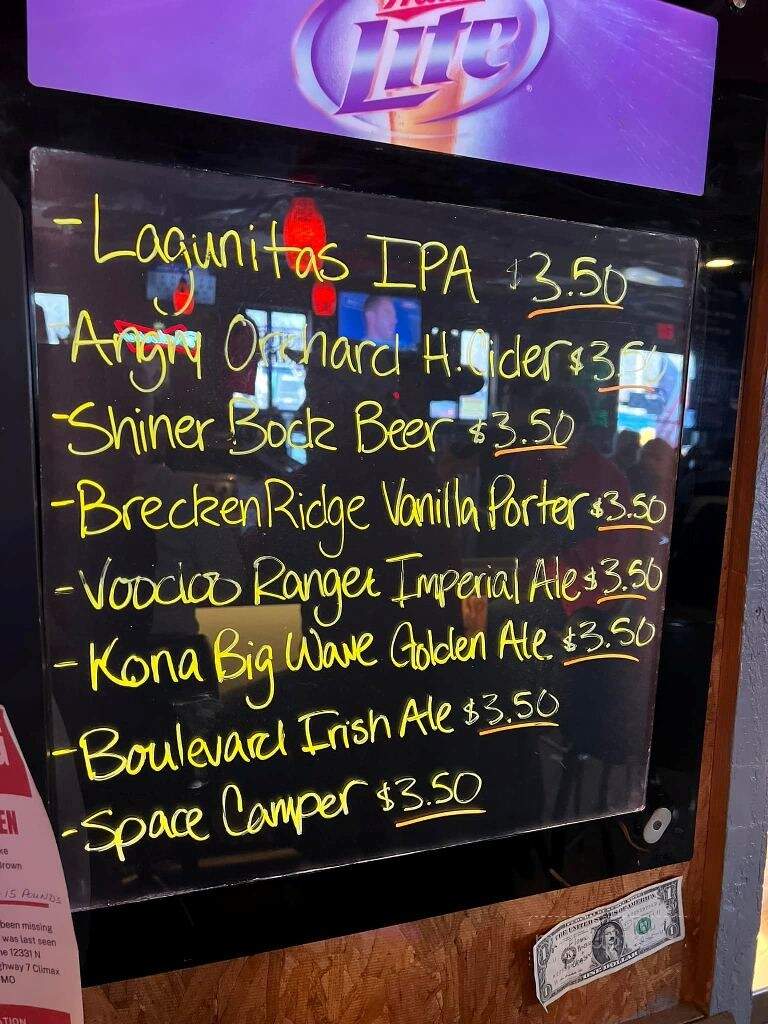 Lite
-Lagunitas IPA $3.50
-Angry Orchard H. Cider $3.50
-Shiner Bock Beer $3.50
-BreckenRidge Vanilla Porter $3.50
-Voodoo Ranger Imperial Ale $3.50
-Kona Big Wave Golden Ale $3.50
-Boulevard Irish Ale $3.50
-Space Camper $3.50
EN
rown
15 POUNDS
been missing
was last seen
12331 N
ghway 7 Climax
MO
THE UNITED STATES OF AMERICA
ONE DOLLAR